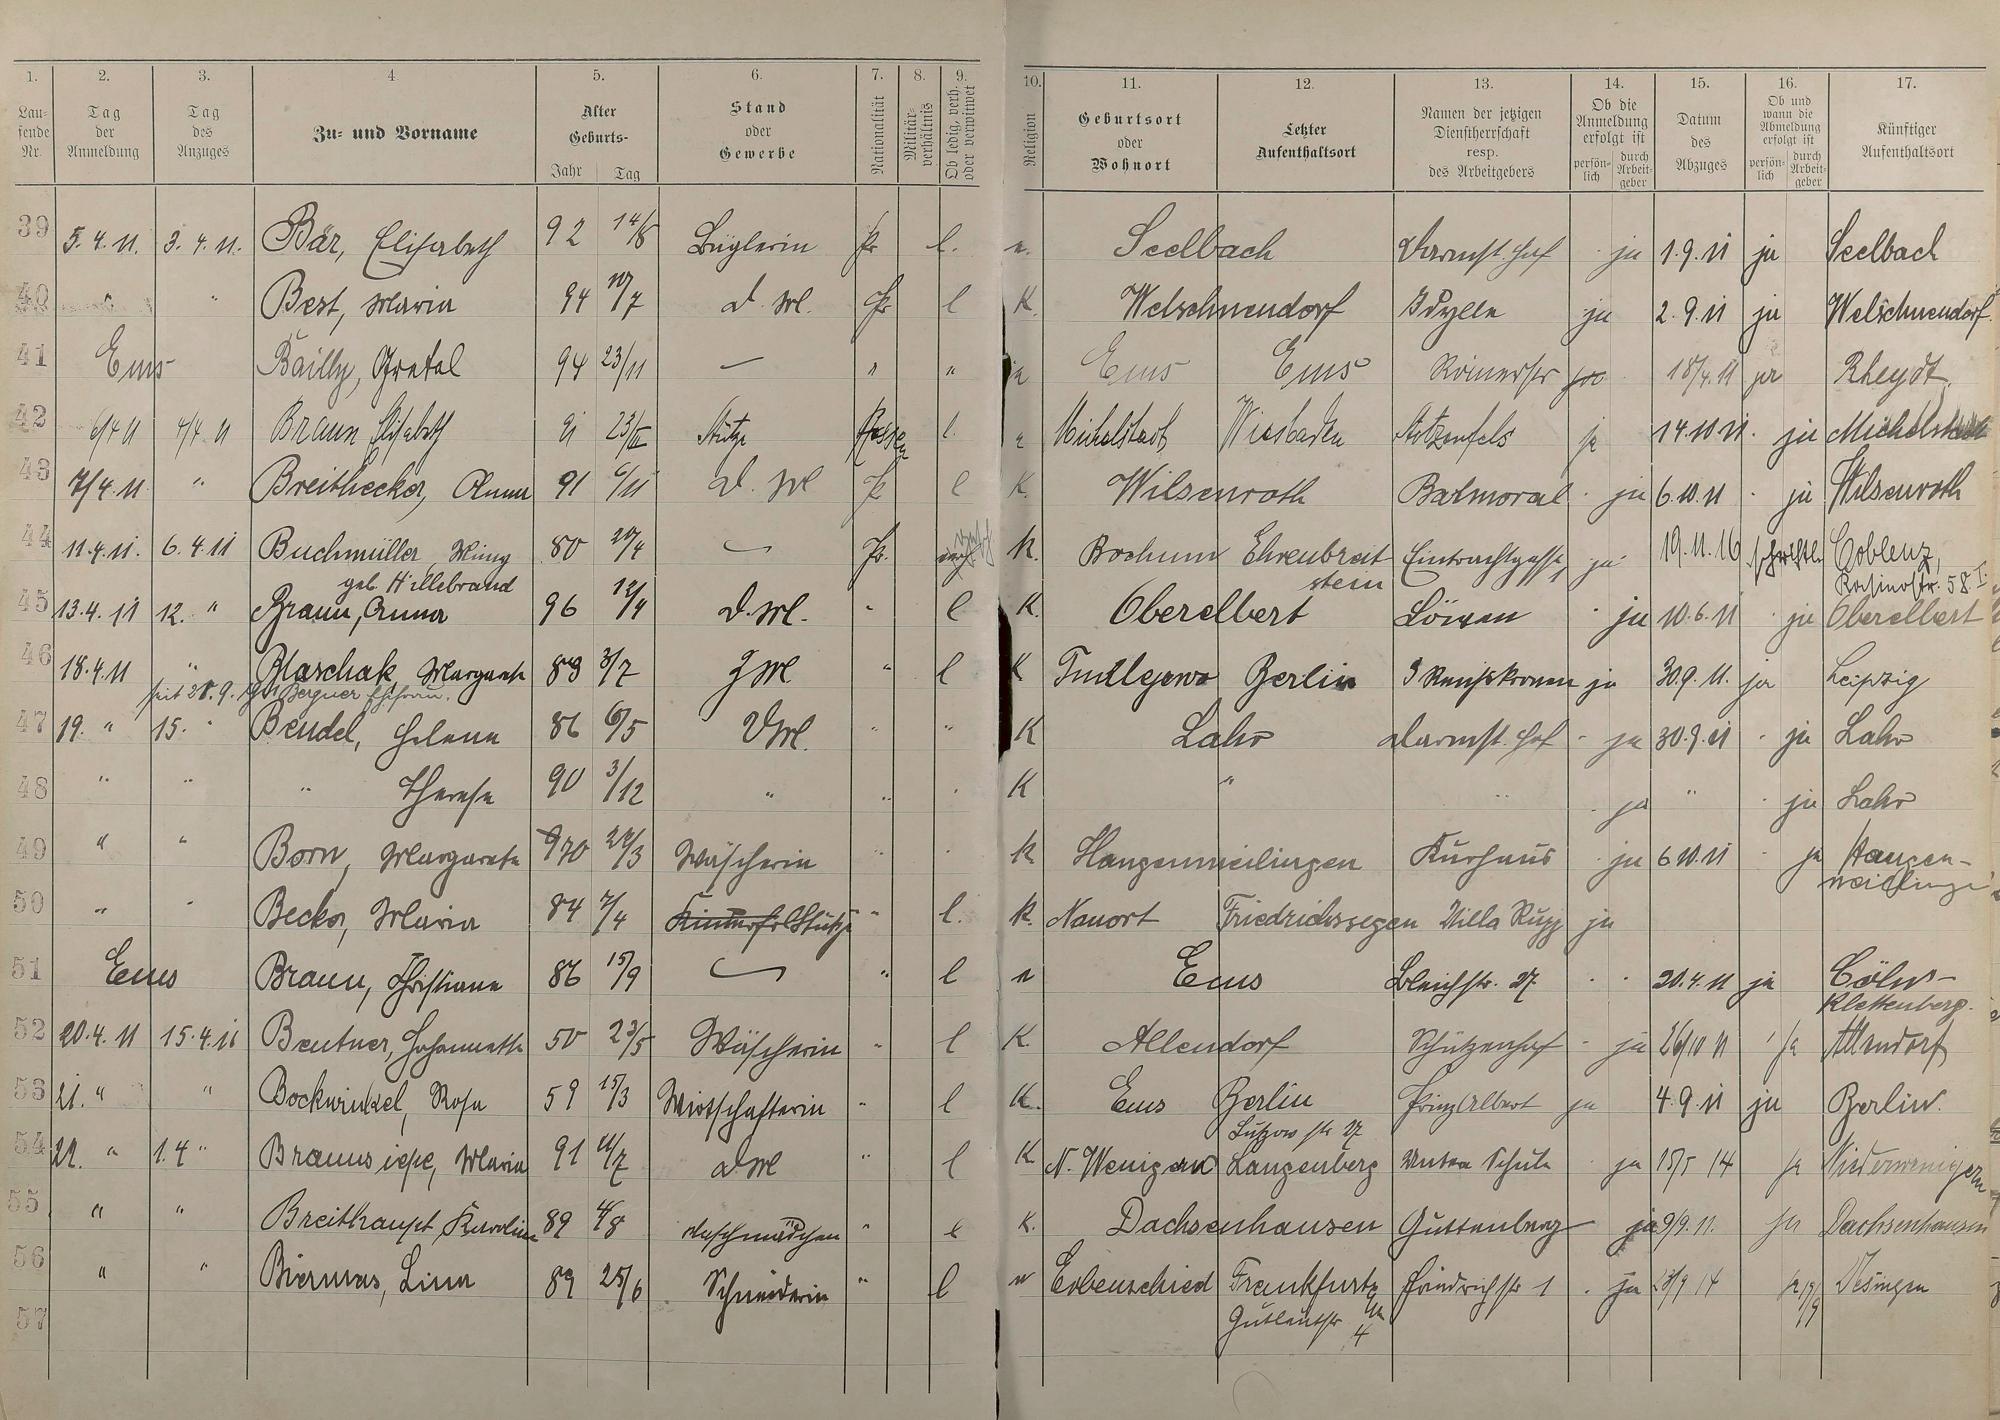 1. 2. 3. 4 5. 6. 7. 8. 9. 10. 11. 12. 13. 14. 15. 16. 17.
Lau-
fende
Nr.
Tag
der
Anmeldung
Tag
des
Anzuges
Zu- und Vorname
Alter
Geburts-
Jahr Tag
Stand
oder
Gewerbe
Nationalität
Militär-
verhältnis
Ob ledig, verh.
oder verwitwet
Religion
Geburtsort
oder
Wohnort
Letzter
Aufenthaltsort
Namen der jetzigen
Dienstherrschaft
resp.
des Arbeitgebers
Ob die
Anmeldung
erfolgt ist
persön-
lich
durch
Arbeit-
geber
Datum
des
Abzuges
Ob und
wann die
Abmeldung
erfolgt ist
persön-
lich
durch
Arbeit-
geber
Künftiger
Aufenthaltsort
39 5.4.11. 3.4.11. Bär, Elisabeth 92 14/8 Büglerin Pr l. Seelbach Darmst. Hof ja 1.9.11 ja Seelbach
40 " " Best, Maria 94 7 D. M. Pr l K. Welschneudorf Idylle ja 2.9.11 ja Welschneudorf
41 Ems Bailly, Gretel 94 23/11 — " " Ems Ems Römerstr ja 18/4.11 ja Rheydt.
42 6/4 11 4/4 11 Braun Elisabeth 91 Stütze Hessen l. Michelstadt, Wiesbaden ja 14.10 11. ja Michelstadt
43 7/4.11 " Breithecker, Anna 91 6/11 D. M Pr l K. Wilsenroth Balmoral ja 6.10.11 ja Wilsenroth
44 11.4.11. 6.4.11 Buchmüller, 80 Pr. K. Bochum Ehrenbreit Eintrachtgasse, ja 19.11.16 schriftl. Coblenz,
geb. Hillebrand stein 58 I
45 13.4.11 12. " Braun, Anna 96 12/4 D. M. " l K. Oberelbert Löwen ja 10.6.11 ja Oberelbert
46 18.4.11 " Blaschak, Margarete 89 3/7 Z M " l K Berlin 3 Reichskronen ja 30.9.11. ja Leipzig
seit 28.9.
47 19. " 15. " Bendel, Helene 86 6/5 " " K Lahr Darmst. Hof ja 30.9.11 ja Lahr
48 " " " Therese 90 3/12 " " K " " ja " ja Lahr
49 " " Born, Margarete 70 Wäscherin " K Hangenmeilingen Kurhaus ja 6 10.11 ja Hangen-
meilingen
50 " " Becker, Maria 84 7/4 Stütze " l. K. Nauort Friedrichssegen Villa Rupp ja
51 Ems Braun, Christiane 86 15/9 " l Ems Bleichstr. 27. 20.4.11 ja Cöln-
Klettenberg.
52 20.4.11 15.4.11 Beutner, Johannette 50 23/5 Wäscherin " l K. Allendorf Schützenhof ja 26/10 11 ja Allendorf
53 21. " " Bockwinkel, Rosa 59 15/3 Wirtschafterin " l K. Ems Berlin Prinz Albert ja 4.9.11 ja Berlin.
Lützow str 27
54 22. " 1.4 " Braunsiepe, Maria 91 11/7 D M " l K N. Wenigern Langenberg Untere Schule ja 15/5 14 ja Niederwenigern
55 " " Breithaupt Karoline 89 4/8 Waschmädchen " l K. Dachsenhausen Guttenberg ja 9/9.11. ja Dachsenhausen
56 " " Biermas, Lina 89 25/6 Schneiderin " l Frankfurt Friedrichstr 1 ja 14
Gutleutstr 4
57